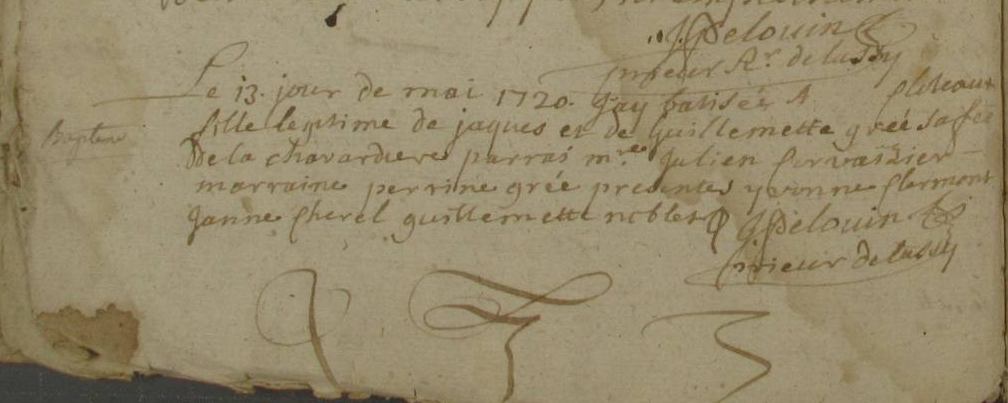 J Delouin
prieur Rr. de lussy
Le 13. jour de mai 1720. Jay batisée
Bapteme
fille legitime de jaques et de Guillemette grée sa fee
De la chavardiere parrai mre Julien
marraine perrine grée presentes yvonne Clermont
Janne Cherel guillemette noblet J Delouin
prieur de lussy